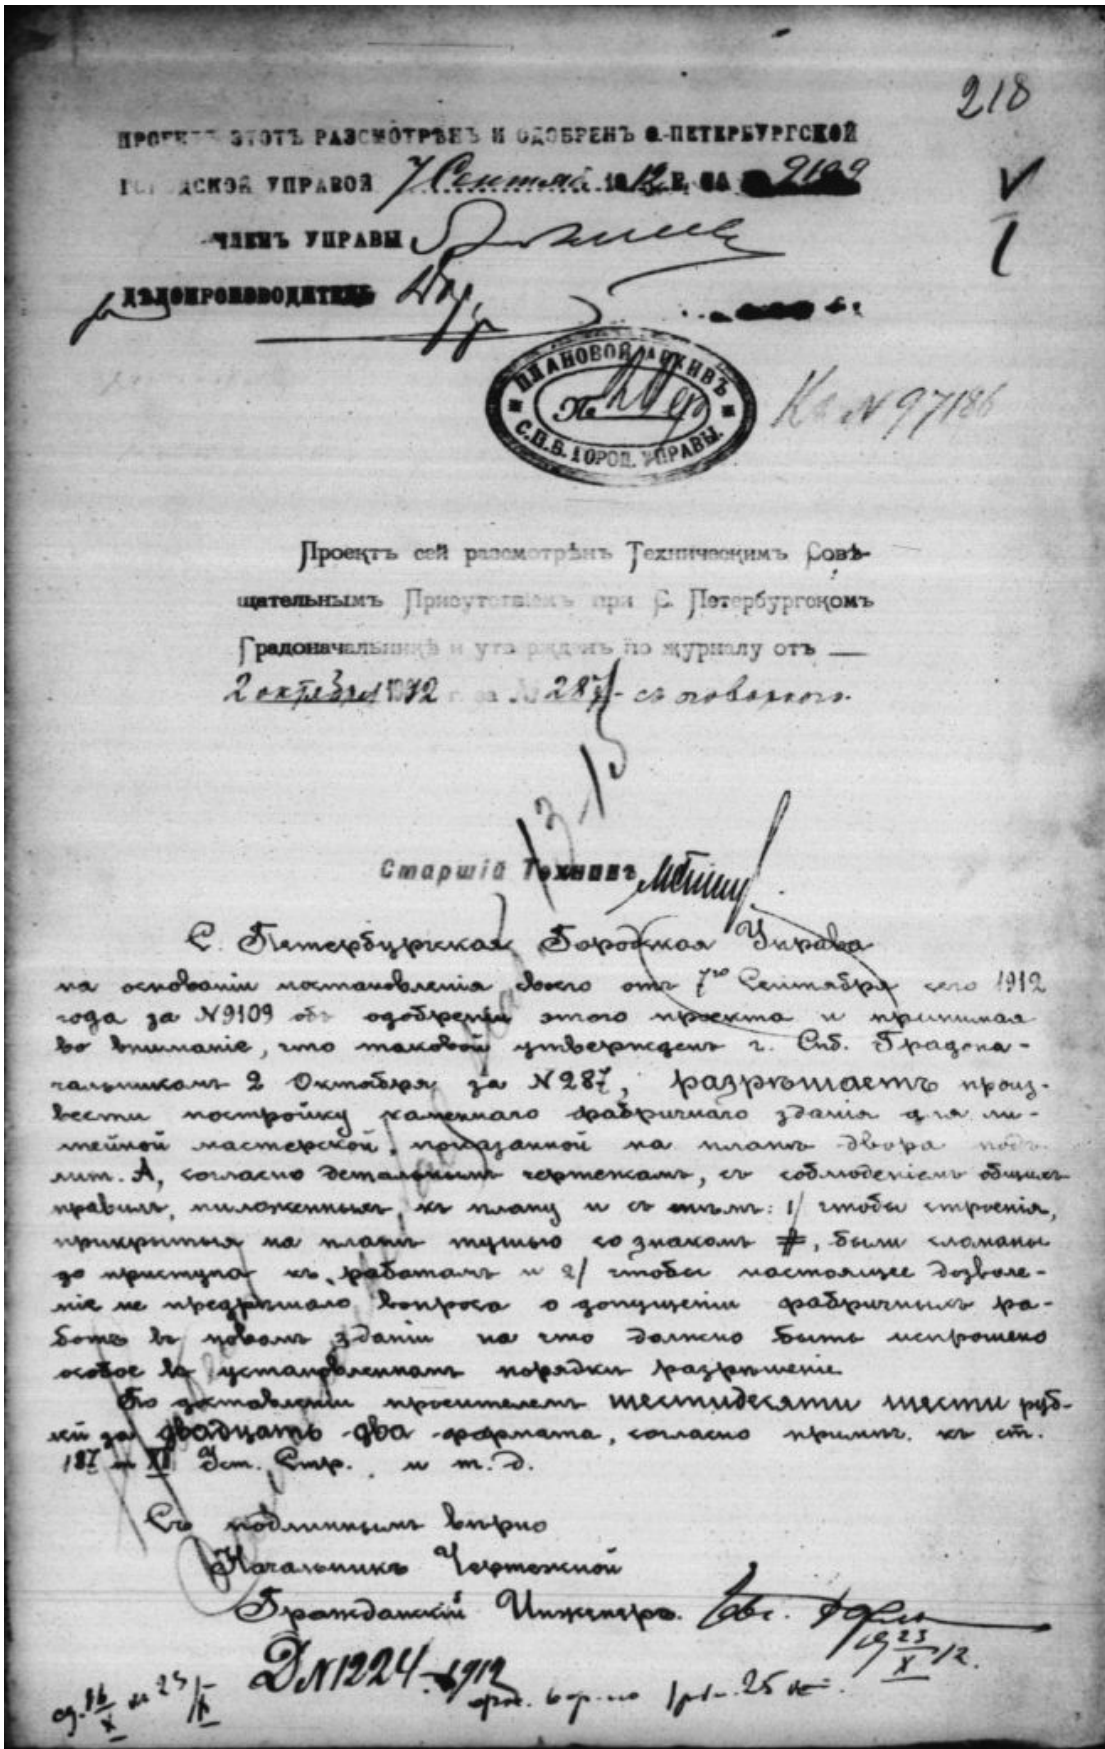 218
ПРОЕКТЪ ЭТОТЪ РАЗСМОТРѢНЪ И ОДОБРЕНЪ С.-ПЕТЕРБУРГСКОЙ
ГОРОДСКОЙ УПРАВОЙ 7 Сентяб 1912 Г. ЗА 9109
ЧЛЕНЪ УПРАВЫ
ДѢЛОПРОИЗВОДИТЕЛЬ
ПЛАНОВОЙ АРХИВЪ
№
С.П.Б. ГОРОД. УПРАВЫ.
Къ N 97186
Проектъ сей разсмотрѣнъ Техническимъ Совѣ-
щательнымъ Присутствіемъ при С. Петербургскомъ
Градоначальникѣ и утвержденъ по журналу отъ —
2 октября 1912 г. за № 287
Старшій Техникъ
С. Петербургская Городская Управа
на основаніи постановленія своего отъ 7го Сентября сего 1912
года за N 9109 объ одобреніи этого проекта и принимая
во вниманіе, что таковой утвержденъ г. Спб. Градона-
чальникомъ 2 Октября за N 287, разрѣшаетъ произ-
вести постройку каменнаго фабричнаго зданія для ли-
тейной мастерской, показанной на планѣ двора подъ
лит. А, согласно детальнымъ чертежамъ, съ соблюденіемъ общихъ
правилъ, приложенныхъ къ плану и съ тѣмъ: 1/ чтобы строенія,
прикрытыя на планѣ тушью со знакомъ #, были сломаны
до приступа къ работамъ и 2/ чтобы настоящее дозволе-
ніе не предрѣшало вопроса о допущеніи фабричныхъ ра-
ботъ въ новомъ зданіи на что должно быть испрошено
особое въ установленномъ порядкѣ разрѣшеніе.
По доставленіи просителемъ шестидесяти шести руб-
лей за двадцать два формата, согласно примѣч. къ ст.
187 т. XII Уст. Стр. и т. д.
Съ подлиннымъ вѣрно
Начальникъ Чертежной
Гражданскій Инженеръ
19 23/X 12.
Д N 1224 - 1912
25 к.